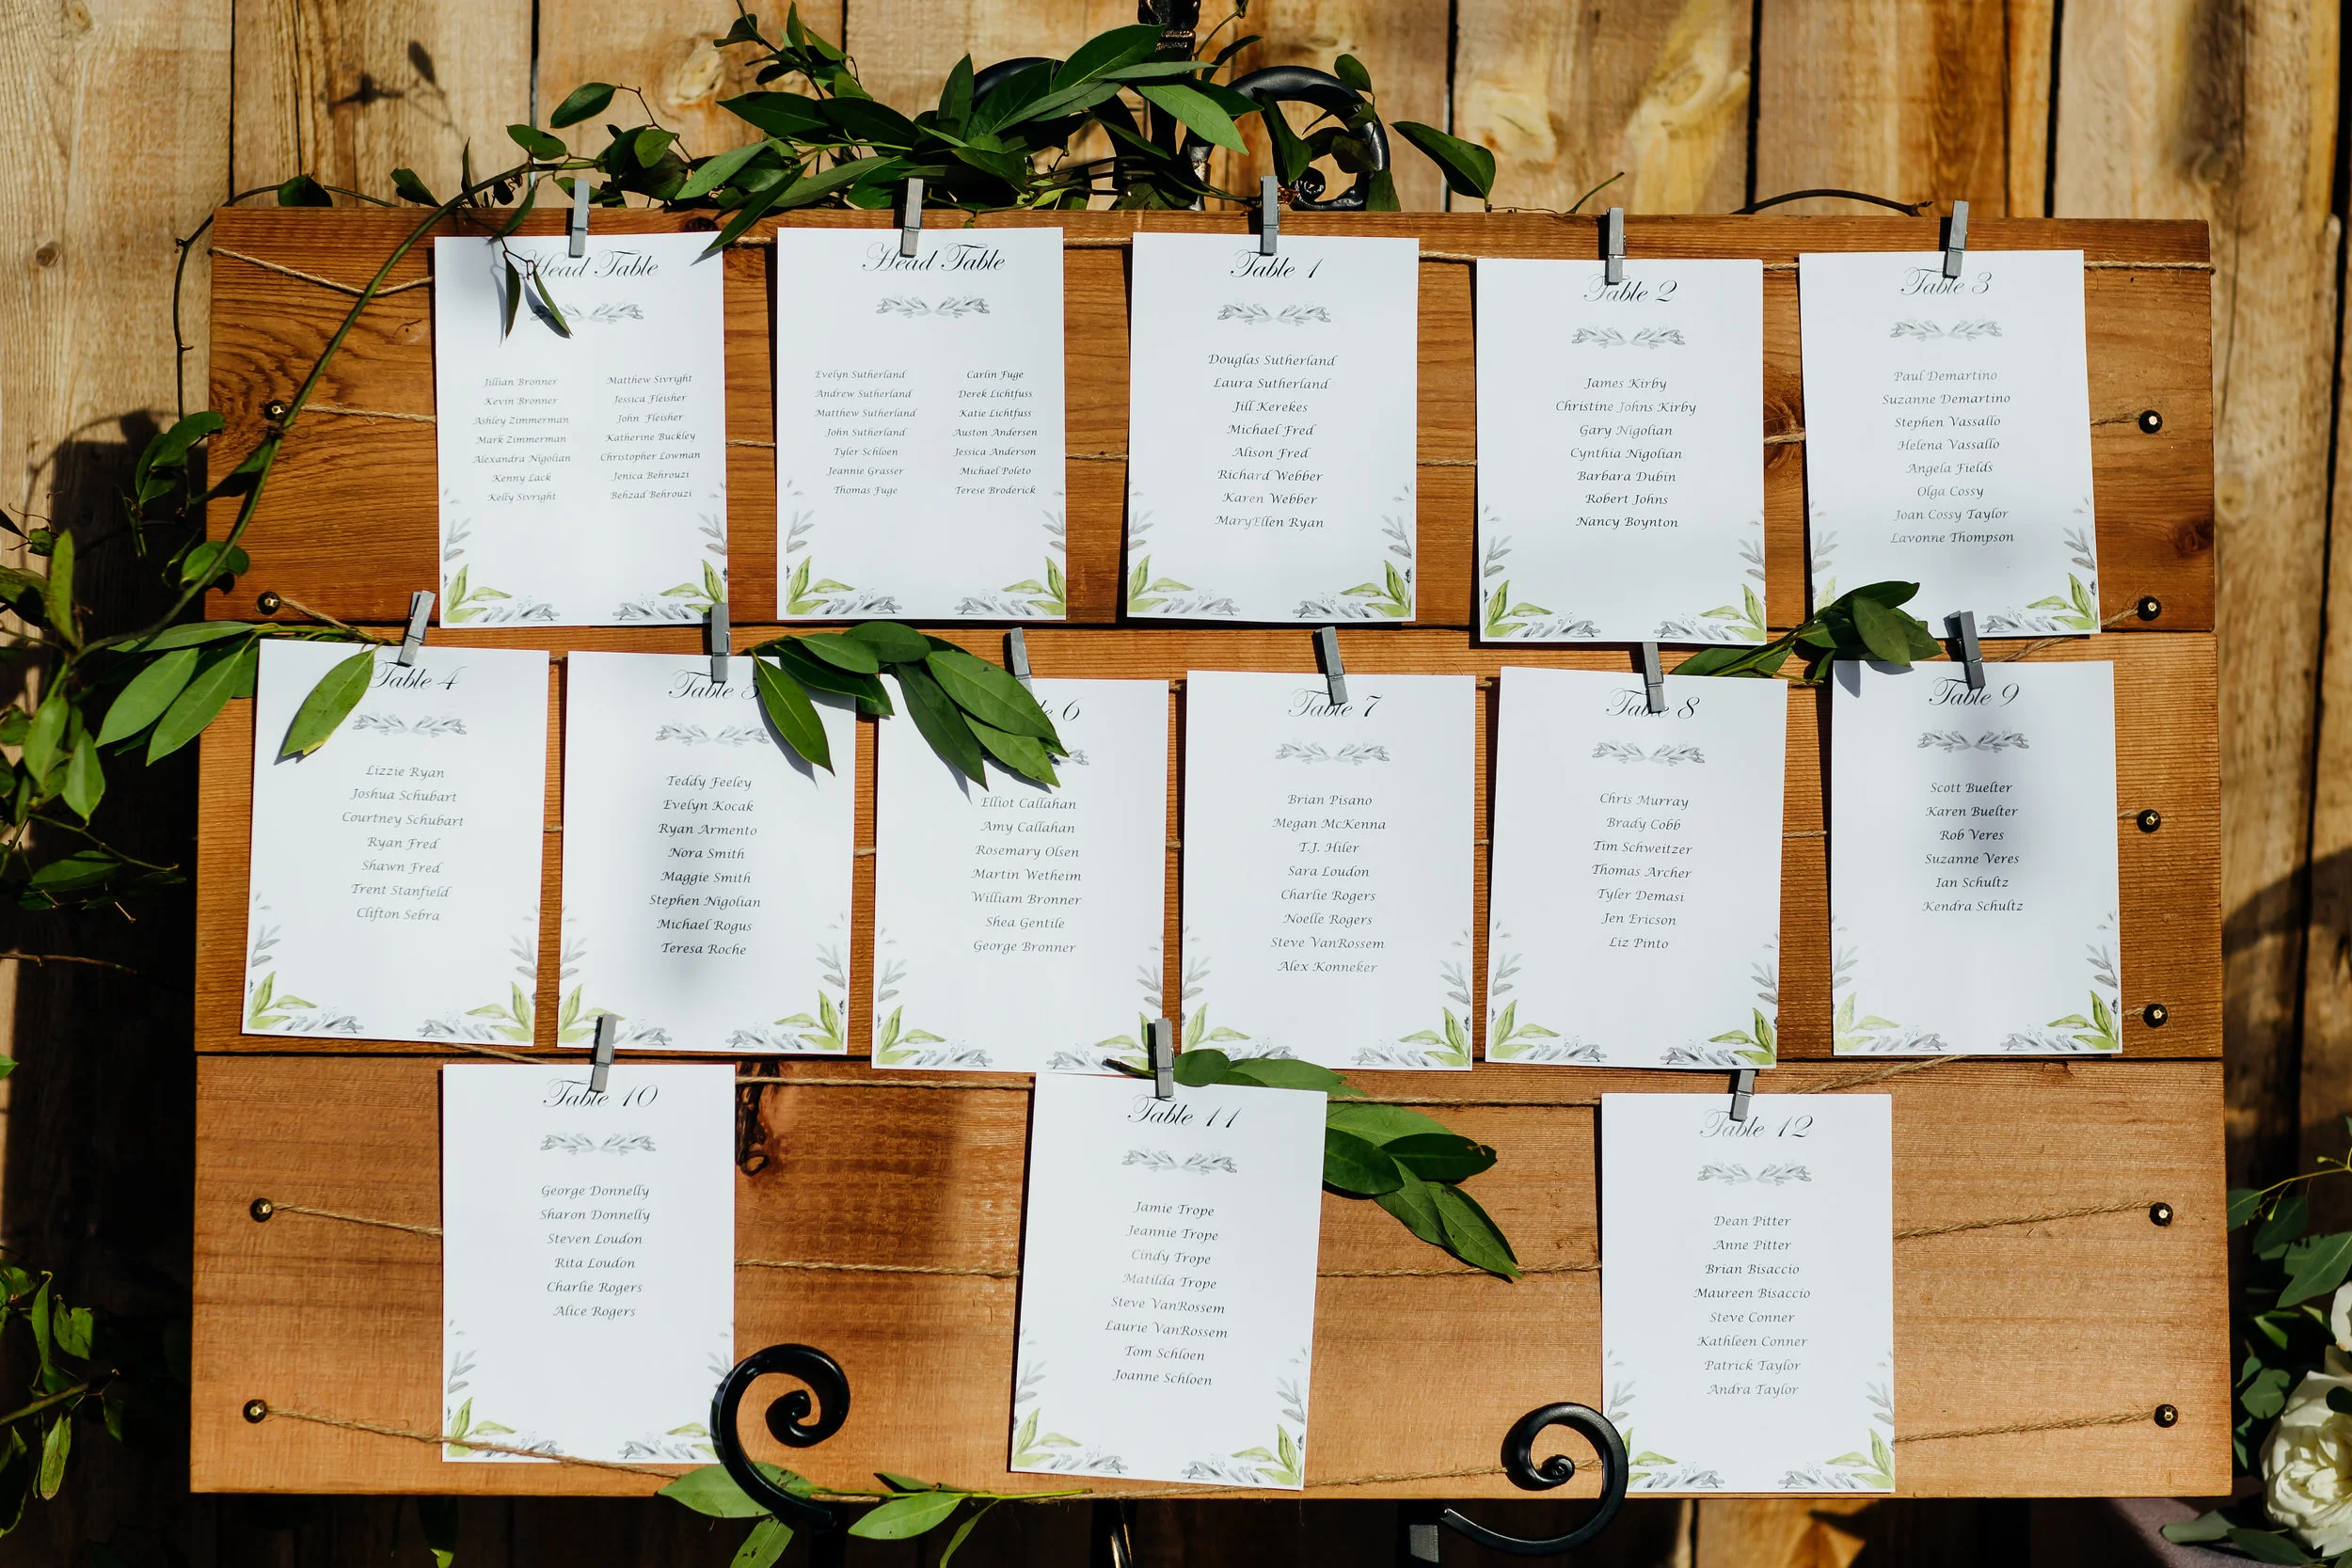 Head Table
Jillian Bronner
Kevin Bronner
Ashley Zimmerman
Mark Zimmerman
Alexandra Nigolian
Kenny Lack
Kelly Sivright
Matthew Sivright
Jessica Fleisher
John Fleisher
Katherine Buckley
Christopher Lowman
Jenica Behrouzi
Behzad Behrouzi
Head Table
Evelyn Sutherland
Andrew Sutherland
Matthew Sutherland
John Sutherland
Tyler Schloen
Jeannie Grasser
Thomas Fuge
Carlin Fuge
Derek Lichtfuss
Katie Lichtfuss
Auston Andersen
Jessica Anderson
Michael Poleto
Terese Broderick
Table 1
Douglas Sutherland
Laura Sutherland
Jill Kerekes
Michael Fred
Alison Fred
Richard Webber
Karen Webber
MaryEllen Ryan
Table 2
James Kirby
Christine Johns Kirby
Gary Nigolian
Cynthia Nigolian
Barbara Dubin
Robert Johns
Nancy Boynton
Table 3
Paul Demartino
Suzanne Demartino
Stephen Vassallo
Helena Vassallo
Angela Fields
Olga Cossy
Joan Cossy Taylor
Lavonne Thompson
Table 4
Lizzie Ryan
Joshua Schubart
Courtney Schubart
Ryan Fred
Shawn Fred
Trent Stanfield
Clifton Sebra
Table 5
Teddy Feeley
Evelyn Kocak
Ryan Armento
Nora Smith
Maggie Smith
Stephen Nigolian
Michael Rogus
Teresa Roche
6
Elliot Callahan
Amy Callahan
Rosemary Olsen
Martin Wetheim
William Bronner
Shea Gentile
George Bronner
Table 7
Brian Pisano
Megan McKenna
T.J. Hiler
Sara Loudon
Charlie Rogers
Noelle Rogers
Steve VanRossem
Alex Konneker
Table 8
Chris Murray
Brady Cobb
Tim Schweitzer
Thomas Archer
Tyler Demasi
Jen Ericson
Liz Pinto
Table 9
Scott Buelter
Karen Buelter
Rob Veres
Suzanne Veres
Ian Schultz
Kendra Schultz
Table 10
George Donnelly
Sharon Donnelly
Steven Loudon
Rita Loudon
Charlie Rogers
Alice Rogers
Table 11
Jamie Trope
Jeannie Trope
Cindy Trope
Matilda Trope
Steve VanRossem
Laurie VanRossem
Tom Schloen
Joanne Schloen
Table 12
Dean Pitter
Anne Pitter
Brian Bisaccio
Maureen Bisaccio
Steve Conner
Kathleen Conner
Patrick Taylor
Andra Taylor